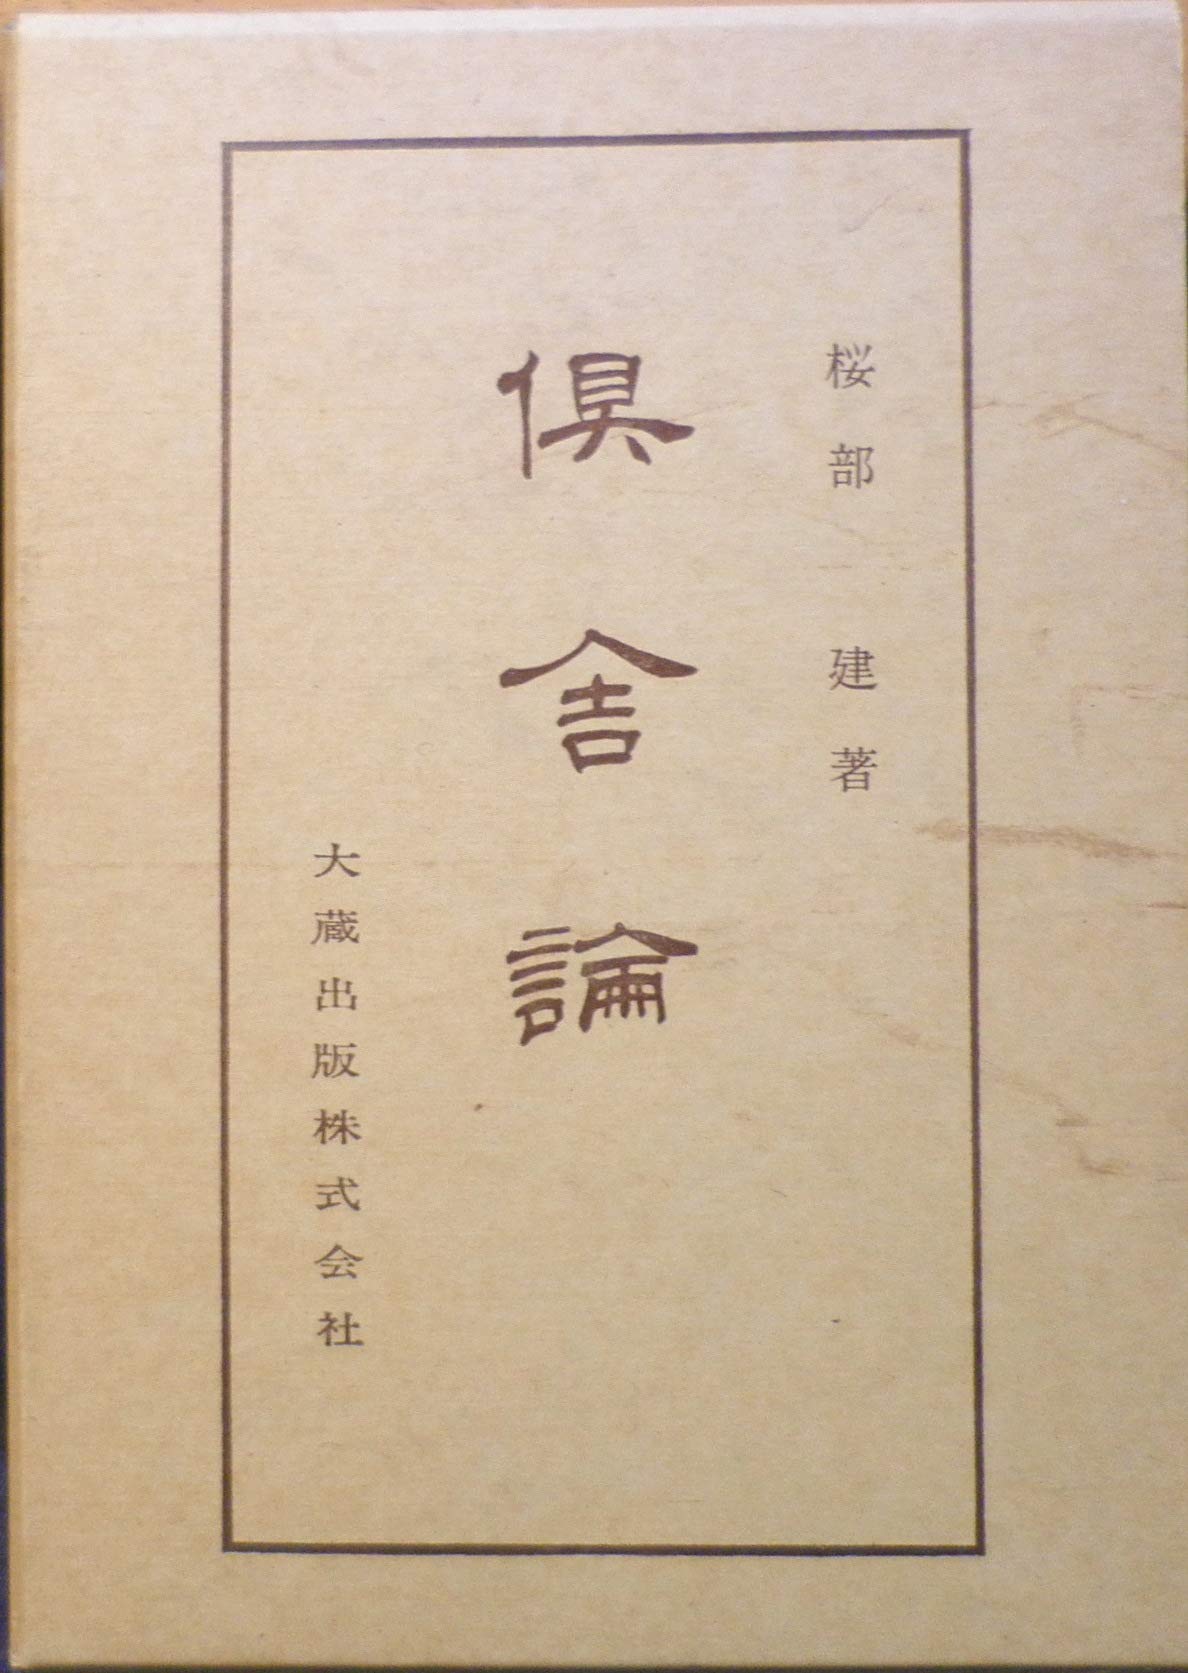 桜部 建著
倶舎論
大蔵出版株式会社